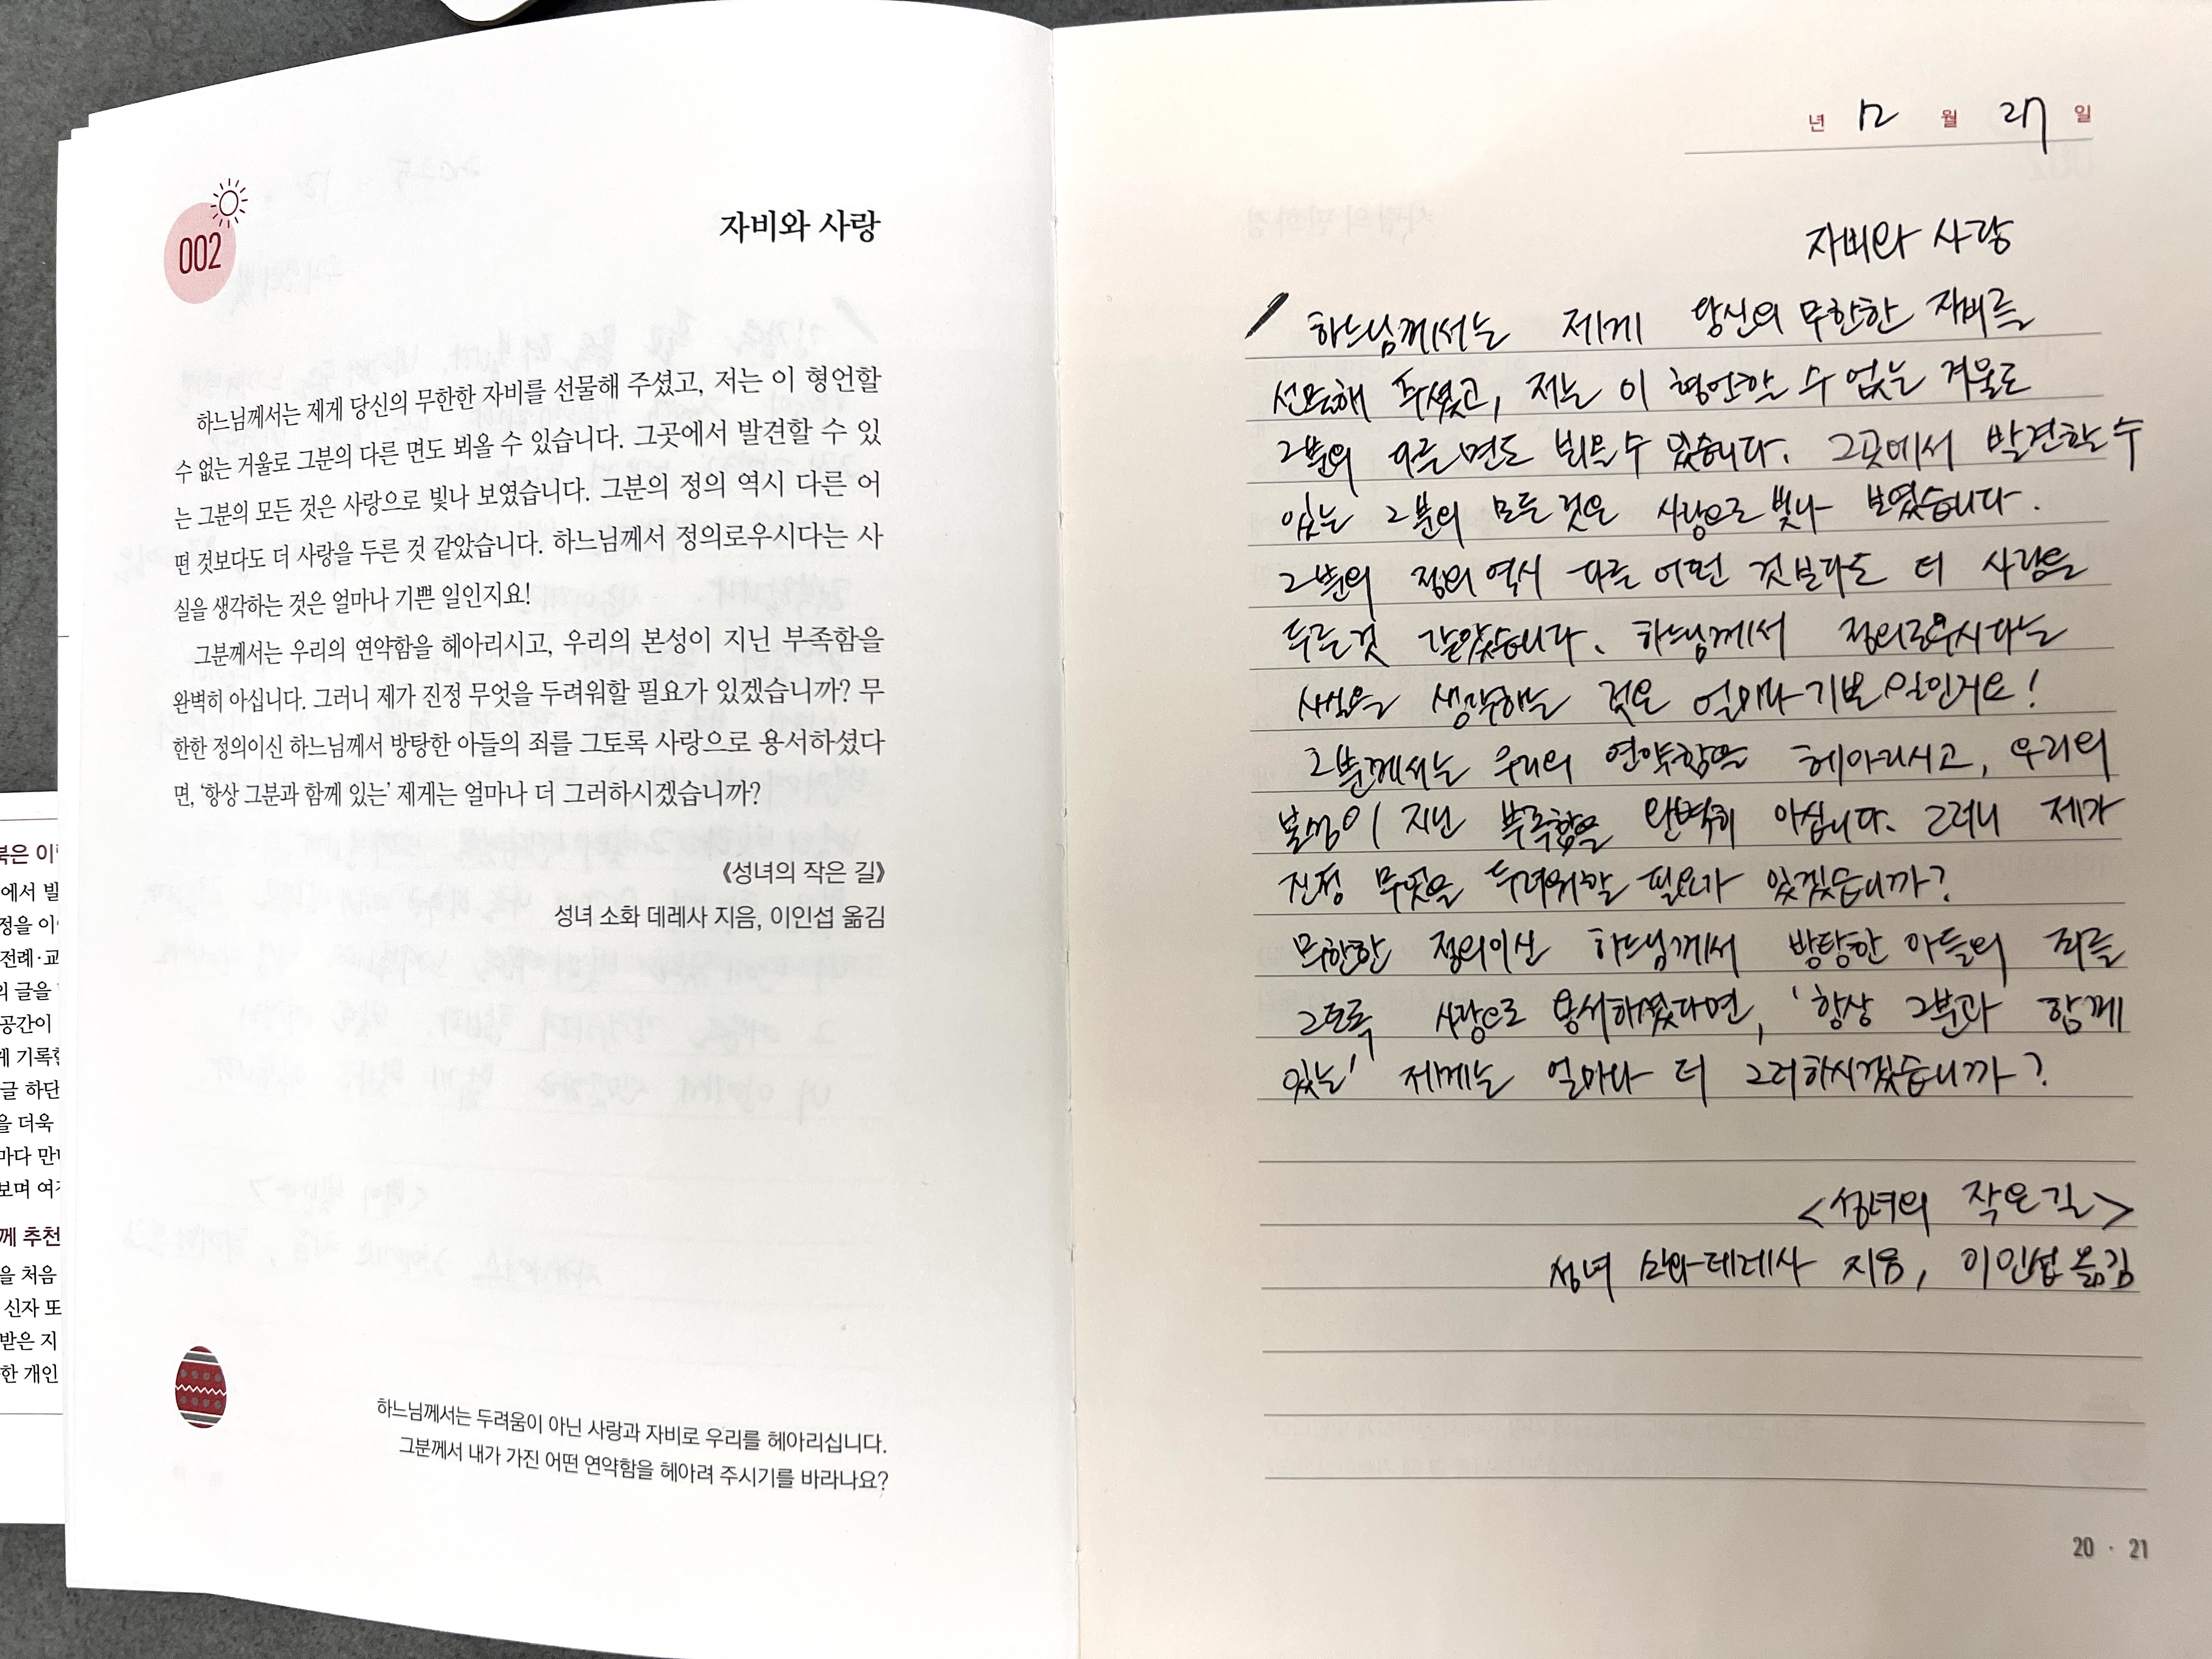 002
자비와 사랑
하느님께서는 제게 당신의 무한한 자비를 선물해 주셨고, 저는 이 형언할
수 없는 거울로 그분의 다른 면도 뵈올 수 있습니다. 그곳에서 발견할 수 있
는 그분의 모든 것은 사랑으로 빛나 보였습니다. 그분의 정의 역시 다른 어
떤 것보다도 더 사랑을 두른 것 같았습니다. 하느님께서 정의로우시다는 사
실을 생각하는 것은 얼마나 기쁜 일인지요!
그분께서는 우리의 연약함을 헤아리시고, 우리의 본성이 지닌 부족함을
완벽히 아십니다. 그러니 제가 진정 무엇을 두려워할 필요가 있겠습니까? 무
한한 정의이신 하느님께서 방탕한 아들의 죄를 그토록 사랑으로 용서하셨다
면, ‘항상 그분과 함께 있는’ 제게는 얼마나 더 그러하시겠습니까?
《성녀의 작은 길》
성녀 소화 데레사 지음, 이인섭 옮김
하느님께서는 두려움이 아닌 사랑과 자비로 우리를 헤아리십니다.
그분께서 내가 가진 어떤 연약함을 헤아려 주시기를 바라나요?
년 12 월 27 일
자비와 사랑
하느님께서는 제게 당신의 무한한 자비를
선물해 주셨고, 저는 이 형언할 수 없는 거울로
그분의 다른 면도 뵈올 수 있습니다. 그곳에서 발견할 수
있는 그분의 모든 것은 사랑으로 빛나 보였습니다.
그분의 정의 역시 다른 어떤 것보다도 더 사랑을
두른 것 같았습니다. 하느님께서 정의로우시다는
사실을 생각하는 것은 얼마나 기쁜 일인지요!
그분께서는 우리의 연약함을 헤아리시고, 우리의
본성이 지닌 부족함을 완벽히 아십니다. 그러니 제가
진정 무엇을 두려워할 필요가 있겠습니까?
무한한 정의이신 하느님께서 방탕한 아들의 죄를
그토록 사랑으로 용서하셨다면, '항상 그분과 함께
있는' 제게는 얼마나 더 그러하시겠습니까?
<성녀의 작은 길>
성녀 소화 데레사 지음, 이인섭 옮김
20 · 21